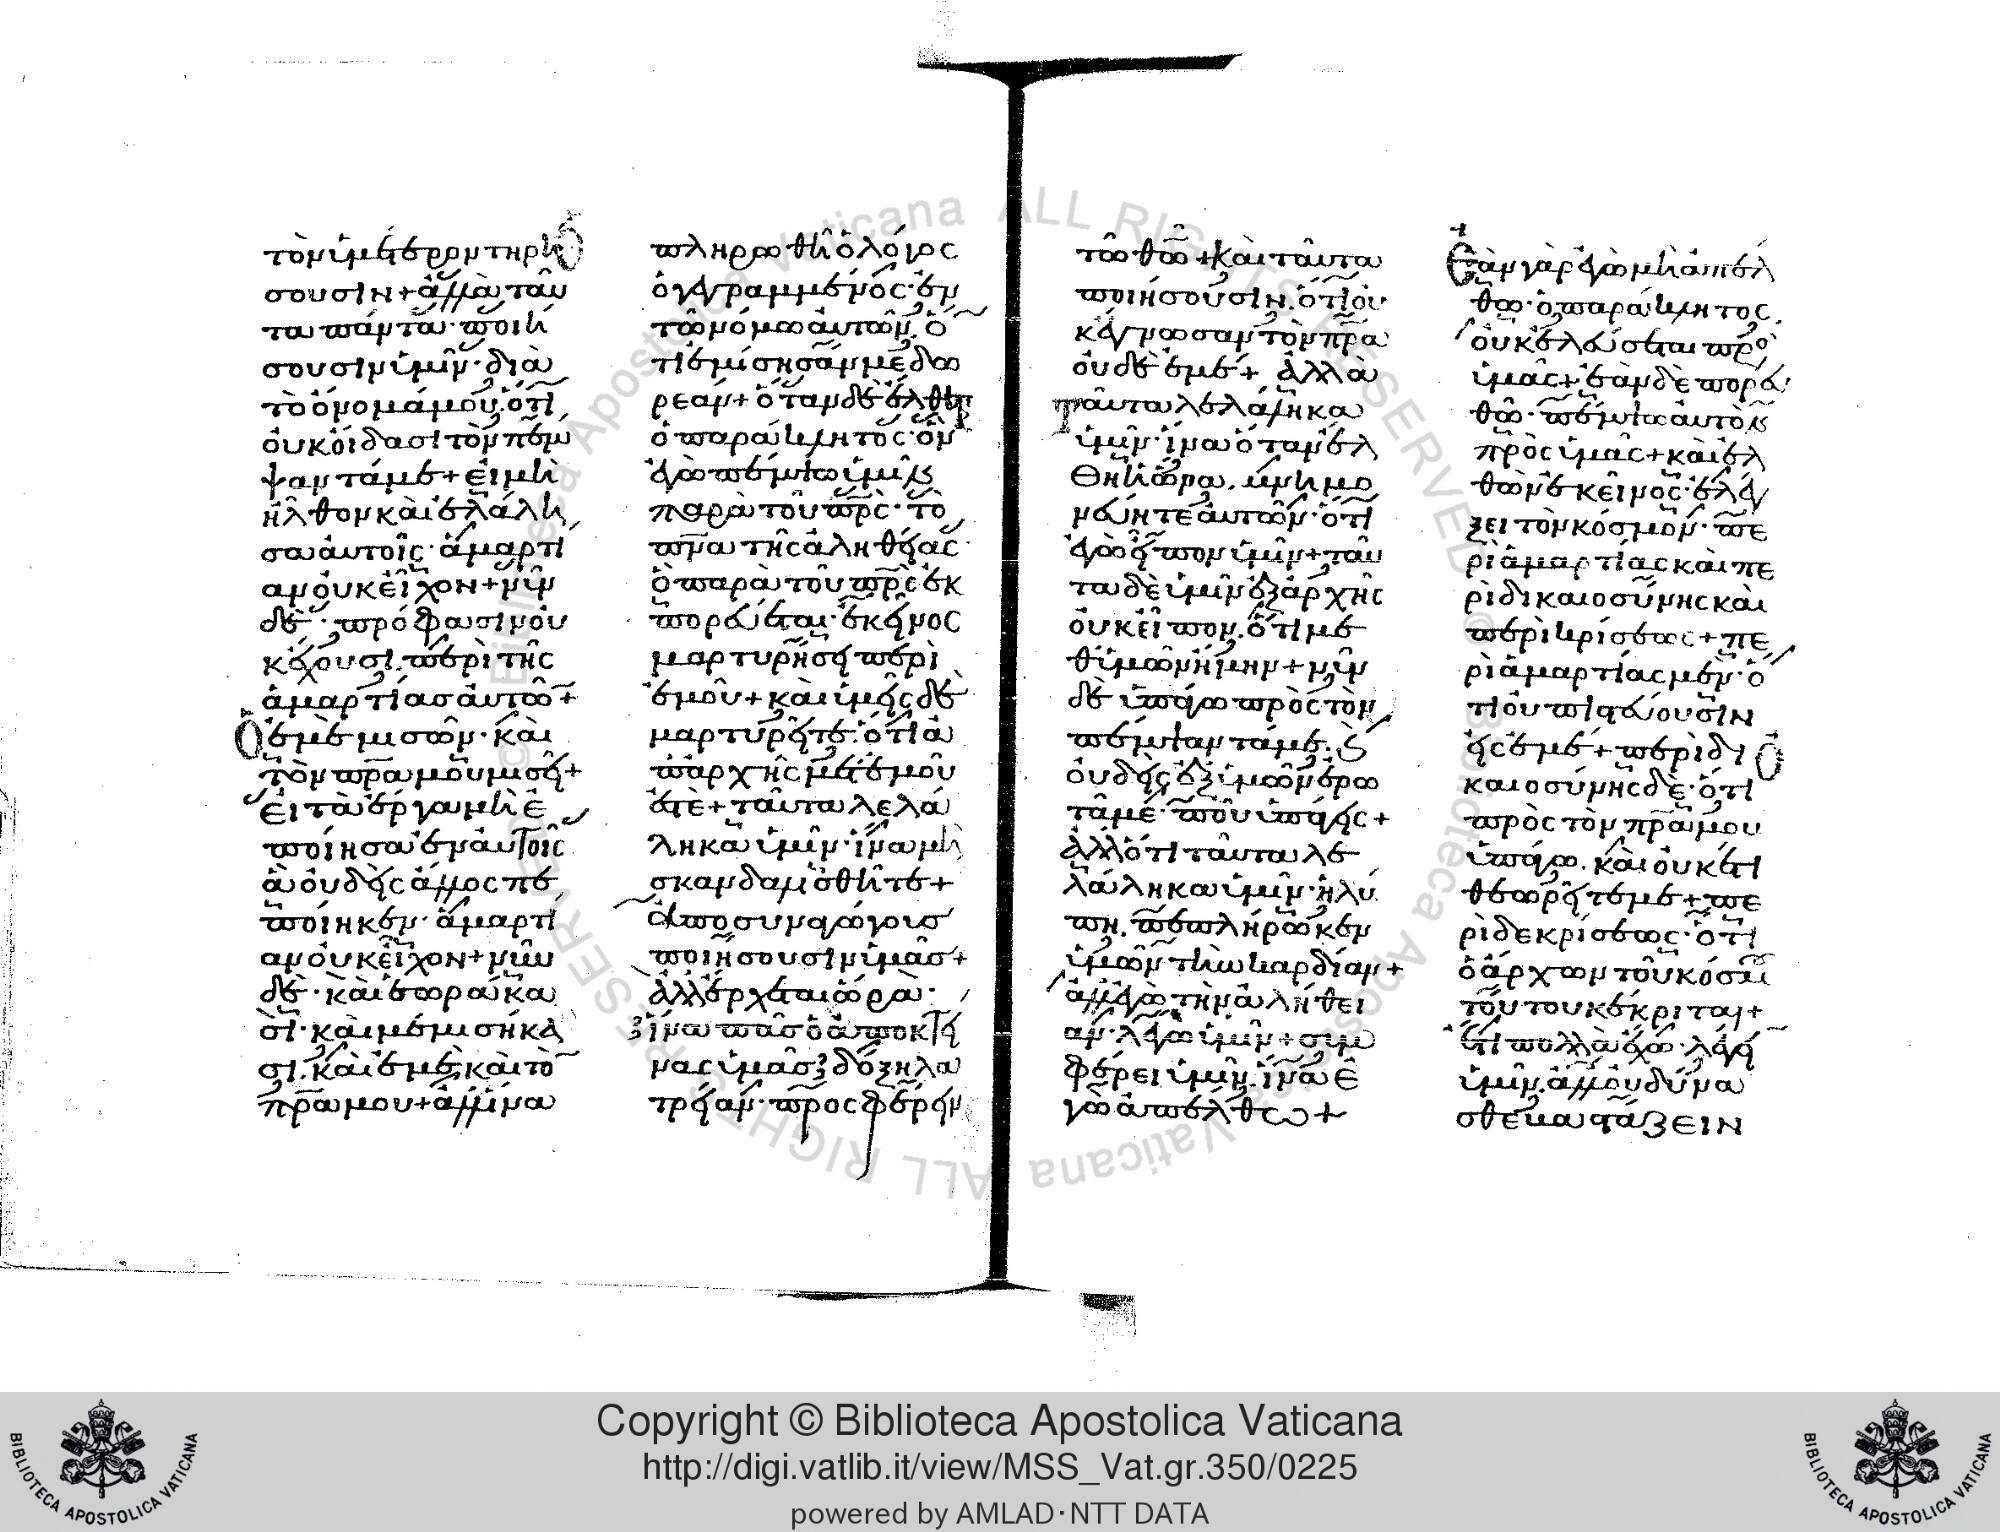 τὸν ὑμέτερον τηρή
σουσιν + ἀλλὰ ταῦ
τα πάντα · ποιή
σουσιν ὑμῖν · διὰ
τὸ ὄνομά μου · ὅτι
οὐκ οἴδασι τὸν πέμ
ψαντά με + εἰ μὴ
ἦλθον καὶ ἐλάλη
σα αὐτοῖς · ἁμαρτί
αν οὐκ εἶχον + νῦν
δὲ · πρόφασιν οὐ
κ ἔχουσι · περὶ τῆς
ἁμαρτίας αὐτῶ +
Ὁ ἐμὲ μισῶν · καὶ
τὸν πρα μου μισεῖ +
εἰ τὰ ἔργα μὴ ἐ
ποίησα ἐν αὐτοῖς
ἃ οὐδεὶς ἄλλος πε
ποίηκεν · ἁμαρτί
αν οὐκ εἶχον + νῦν
δὲ · καὶ ἑωράκα
σι · καὶ μεμισήκα
σι · καὶ ἐμὲ καὶ τὸ
πρα μου + ἀλλ' ἵνα
πληρωθῆ ὁ λόγος
ὁ γεγραμμένος · ἐν
τῶ νόμω αὐτῶν · ὅ
τι ἐμίσησάν με δω
ρεάν + ὅταν δὲ ἔλθη
ὁ παράκλητος · ὃν
ἐγὼ πέμψω ὑμῖν
παρὰ τοῦ πρς · τὸ
πνα τῆς ἀληθείας
ὃ παρὰ τοῦ πρς ἐκ
πορεύεται · ἐκεῖνος
μαρτυρήσει περὶ
ἐμοῦ + καὶ ὑμεῖς δὲ
μαρτυρεῖτε · ὅτι ἀ
π' ἀρχῆς μετ' ἐμοῦ
ἐστὲ + ταῦτα λελά
ληκα ὑμῖν · ἵνα μὴ
σκανδαλισθῆτε +
ἀποσυναγώγους
ποιήσουσιν ὑμᾶς +
ἀλλ' ἔρχεται ὥρα ·
ἵνα πᾶς ὁ ἀποκτεί
νας ὑμᾶς δόξη λα
τρείαν · προσφέρειν
τῶ θῶ + καὶ ταῦτα
ποιήσουσιν · ὅτι οὐ
κ ἔγνωσαν τὸν πρα
οὐδὲ ἐμέ + ἀλλὰ
Ταῦτα λελάληκα
ὑμῖν · ἵνα ὅταν ἔλ
θη ἡ ὥρα · μνημο
νεύητε αὐτῶν · ὅτι
ἐγὼ εἶπον ὑμῖν + ταῦ
τα δὲ ὑμῖν ἐξ ἀρχῆς
οὐκ εἶπον · ὅτι με
θ' ὑμῶν ἤμην + νῦν
δὲ ὑπάγω πρὸς τὸν
πέμψαντά με · καὶ
οὐδεὶς ἐξ ὑμῶν ἐρω
τᾶ με · ποῦ ὑπάγεις +
ἀλλ' ὅτι ταῦτα λε
λάληκα ὑμῖν · ἡ λύ
πη · πεπλήρωκεν
ὑμῶν τὴν καρδίαν +
ἀλλ' ἐγὼ τὴν ἀλήθει
αν · λέγω ὑμῖν + συμ
φέρει ὑμῖν · ἵνα ἐ
γὼ ἀπέλθω +
Ἐὰν γὰρ ἐγὼ μὴ ἀπέλ
θω · ὁ παράκλητος
οὐκ ἐλεύσεται πρὸ
ὑμᾶς + ἐὰν δὲ πορευ
θῶ · πέμψω αὐτὸν
πρὸς ὑμᾶς + καὶ ἐλ
θὼν ἐκεῖνος · ἐλέγ
ξει τὸν κόσμον · πε
ρὶ ἁμαρτίας καὶ πε
ρὶ δικαιοσύνης καὶ
περὶ κρίσεως + πε
ρὶ ἁμαρτίας μὲν · ὅ
τι οὐ πιστεύουσιν
εἰς ἐμέ + περὶ δι
καιοσύνης δὲ · ὅτι
πρὸς τὸν πρα μου
ὑπάγω · καὶ οὐκέτι
θεωρεῖτέ με + πε
ρὶ δὲ κρίσεως · ὅτι
ὁ ἄρχων τοῦ κόσμου
τούτου κέκριται +
ἔτι πολλὰ ἔχω · λέγει
ὑμῖν · ἀλλ' οὐ δύνα
σθε βαστάζειν
Copyright © Biblioteca Apostolica Vaticana
http://digi.vatlib.it/view/MSS_Vat.gr.350/0225
powered by AMLAD·NTT DATA
BIBLIOTECA APOSTOLICA VATICANA
BIBLIOTECA APOSTOLICA VATICANA